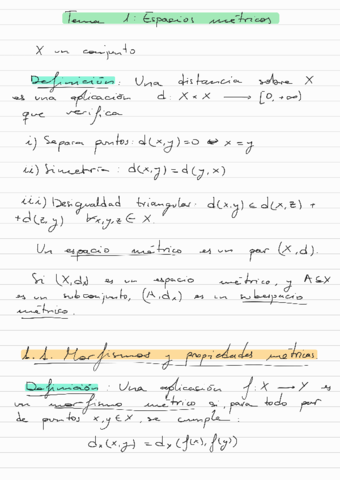 Tema 1: Espacios métricos
X un conjunto
Definición: Una distancia sobre X
es una aplicación d: X×X ⟶ [0,+∞)
que verifica
i) Separa puntos: d(x,y)=0 ⇔ x=y
ii) Simetría: d(x,y)=d(y,x)
iii) Desigualdad triangular: d(x,y) ≤ d(x,z) +
+d(z,y) ∀x,y,z ∈ X.
Un espacio métrico es un par (X,d).
Si (X,dₓ) es un espacio métrico, y A⊆X
es un subconjunto, (A,dₓ) es un subespacio
métrico.
1.1. Morfismos y propiedades métricas.
Definición: Una aplicación f: X ⟶ Y es
un morfismo métrico si, para todo par
de puntos x,y∈X, se cumple:
dₓ(x,y) = d_Y(f(x), f(y))